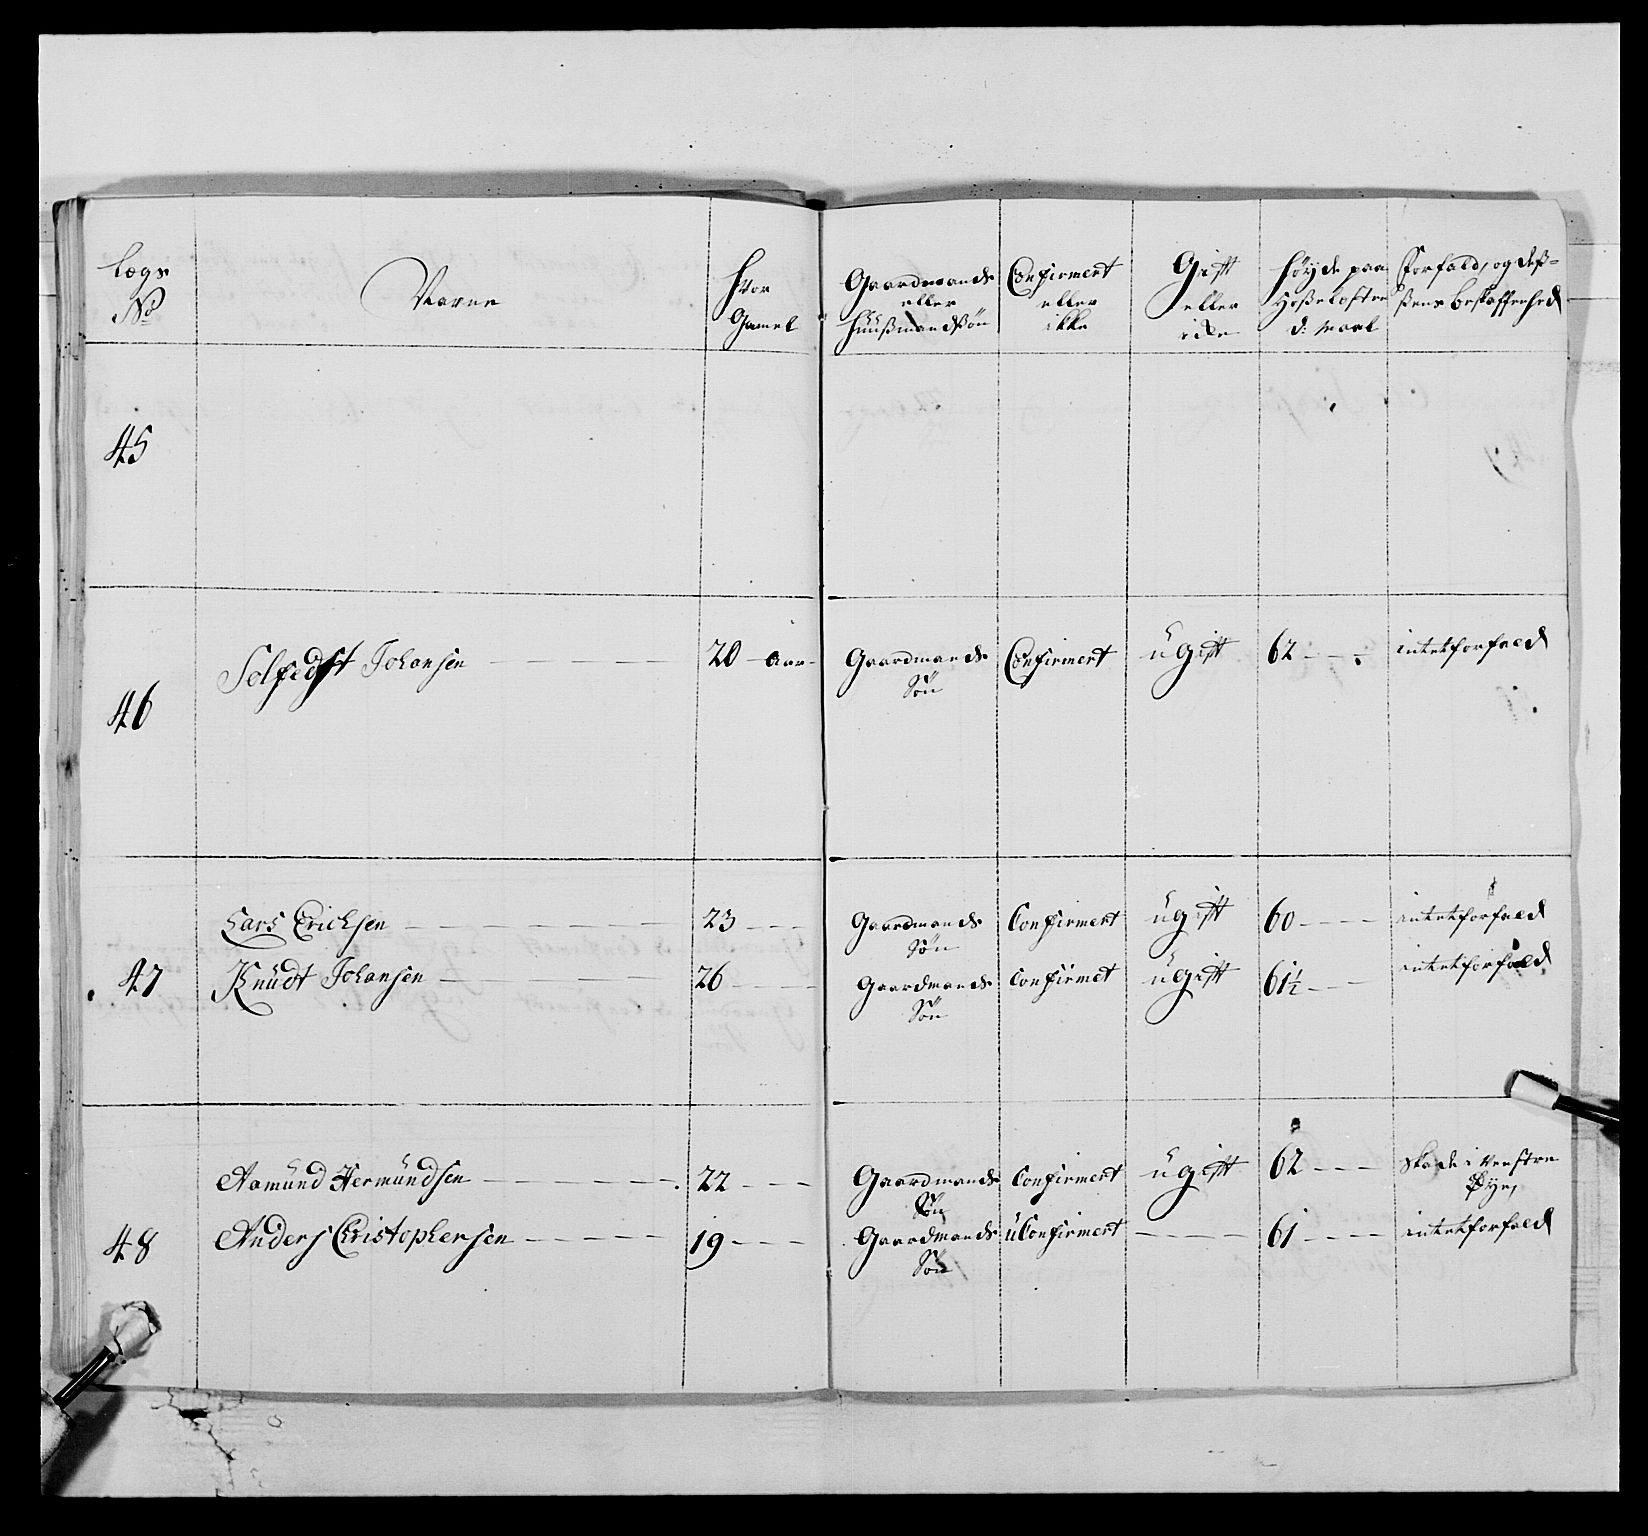 Lægs No
Navne
Hvor Gamel
Gaardmands eller Huusmandsøn
Confirmert eller ikke
Gift eller icke
Høyde paa Hoseloftene d: Maal
Forfald, og deß=
ßens beskaffenhed
45
46
Johansen 20 Aar Gaardmands Confirmert ugift 62 intet forfald
Søn
47
Lars Ericksen 23 Gaardmands Confirmert ugift 60 intet forfald
Søn
Knüdt Johansen 26 Gaardmands Confirmet ugift 61½ intet forfald
Søn
48
Aamünd Hermündsen 22 Gaardmands Confirmert ugift 62 Skade i Venstre
Søn Øye,
Anders Christophersen 19 Gaardmands uConfirmert 61 intet forfald
Søn